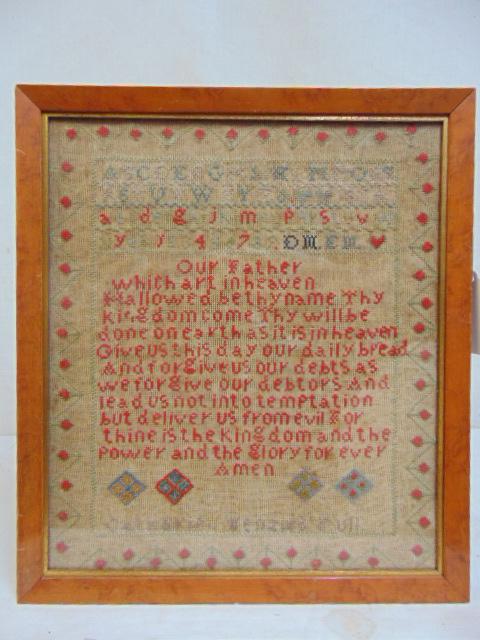 A C E G I K M O Q S
U W Y
a d g j m p s v
y 1 4 7 DM EM
Our Father
which art in heaven
Hallowed be thy name Thy
kingdom come Thy will be
done on earth as it is in heaven
Give us this day our daily bread
And forgive us our debts as
we forgive our debtors And
lead us not into temptation
but deliver us from evil For
thine is the kingdom and the
power and the glory for ever
Amen